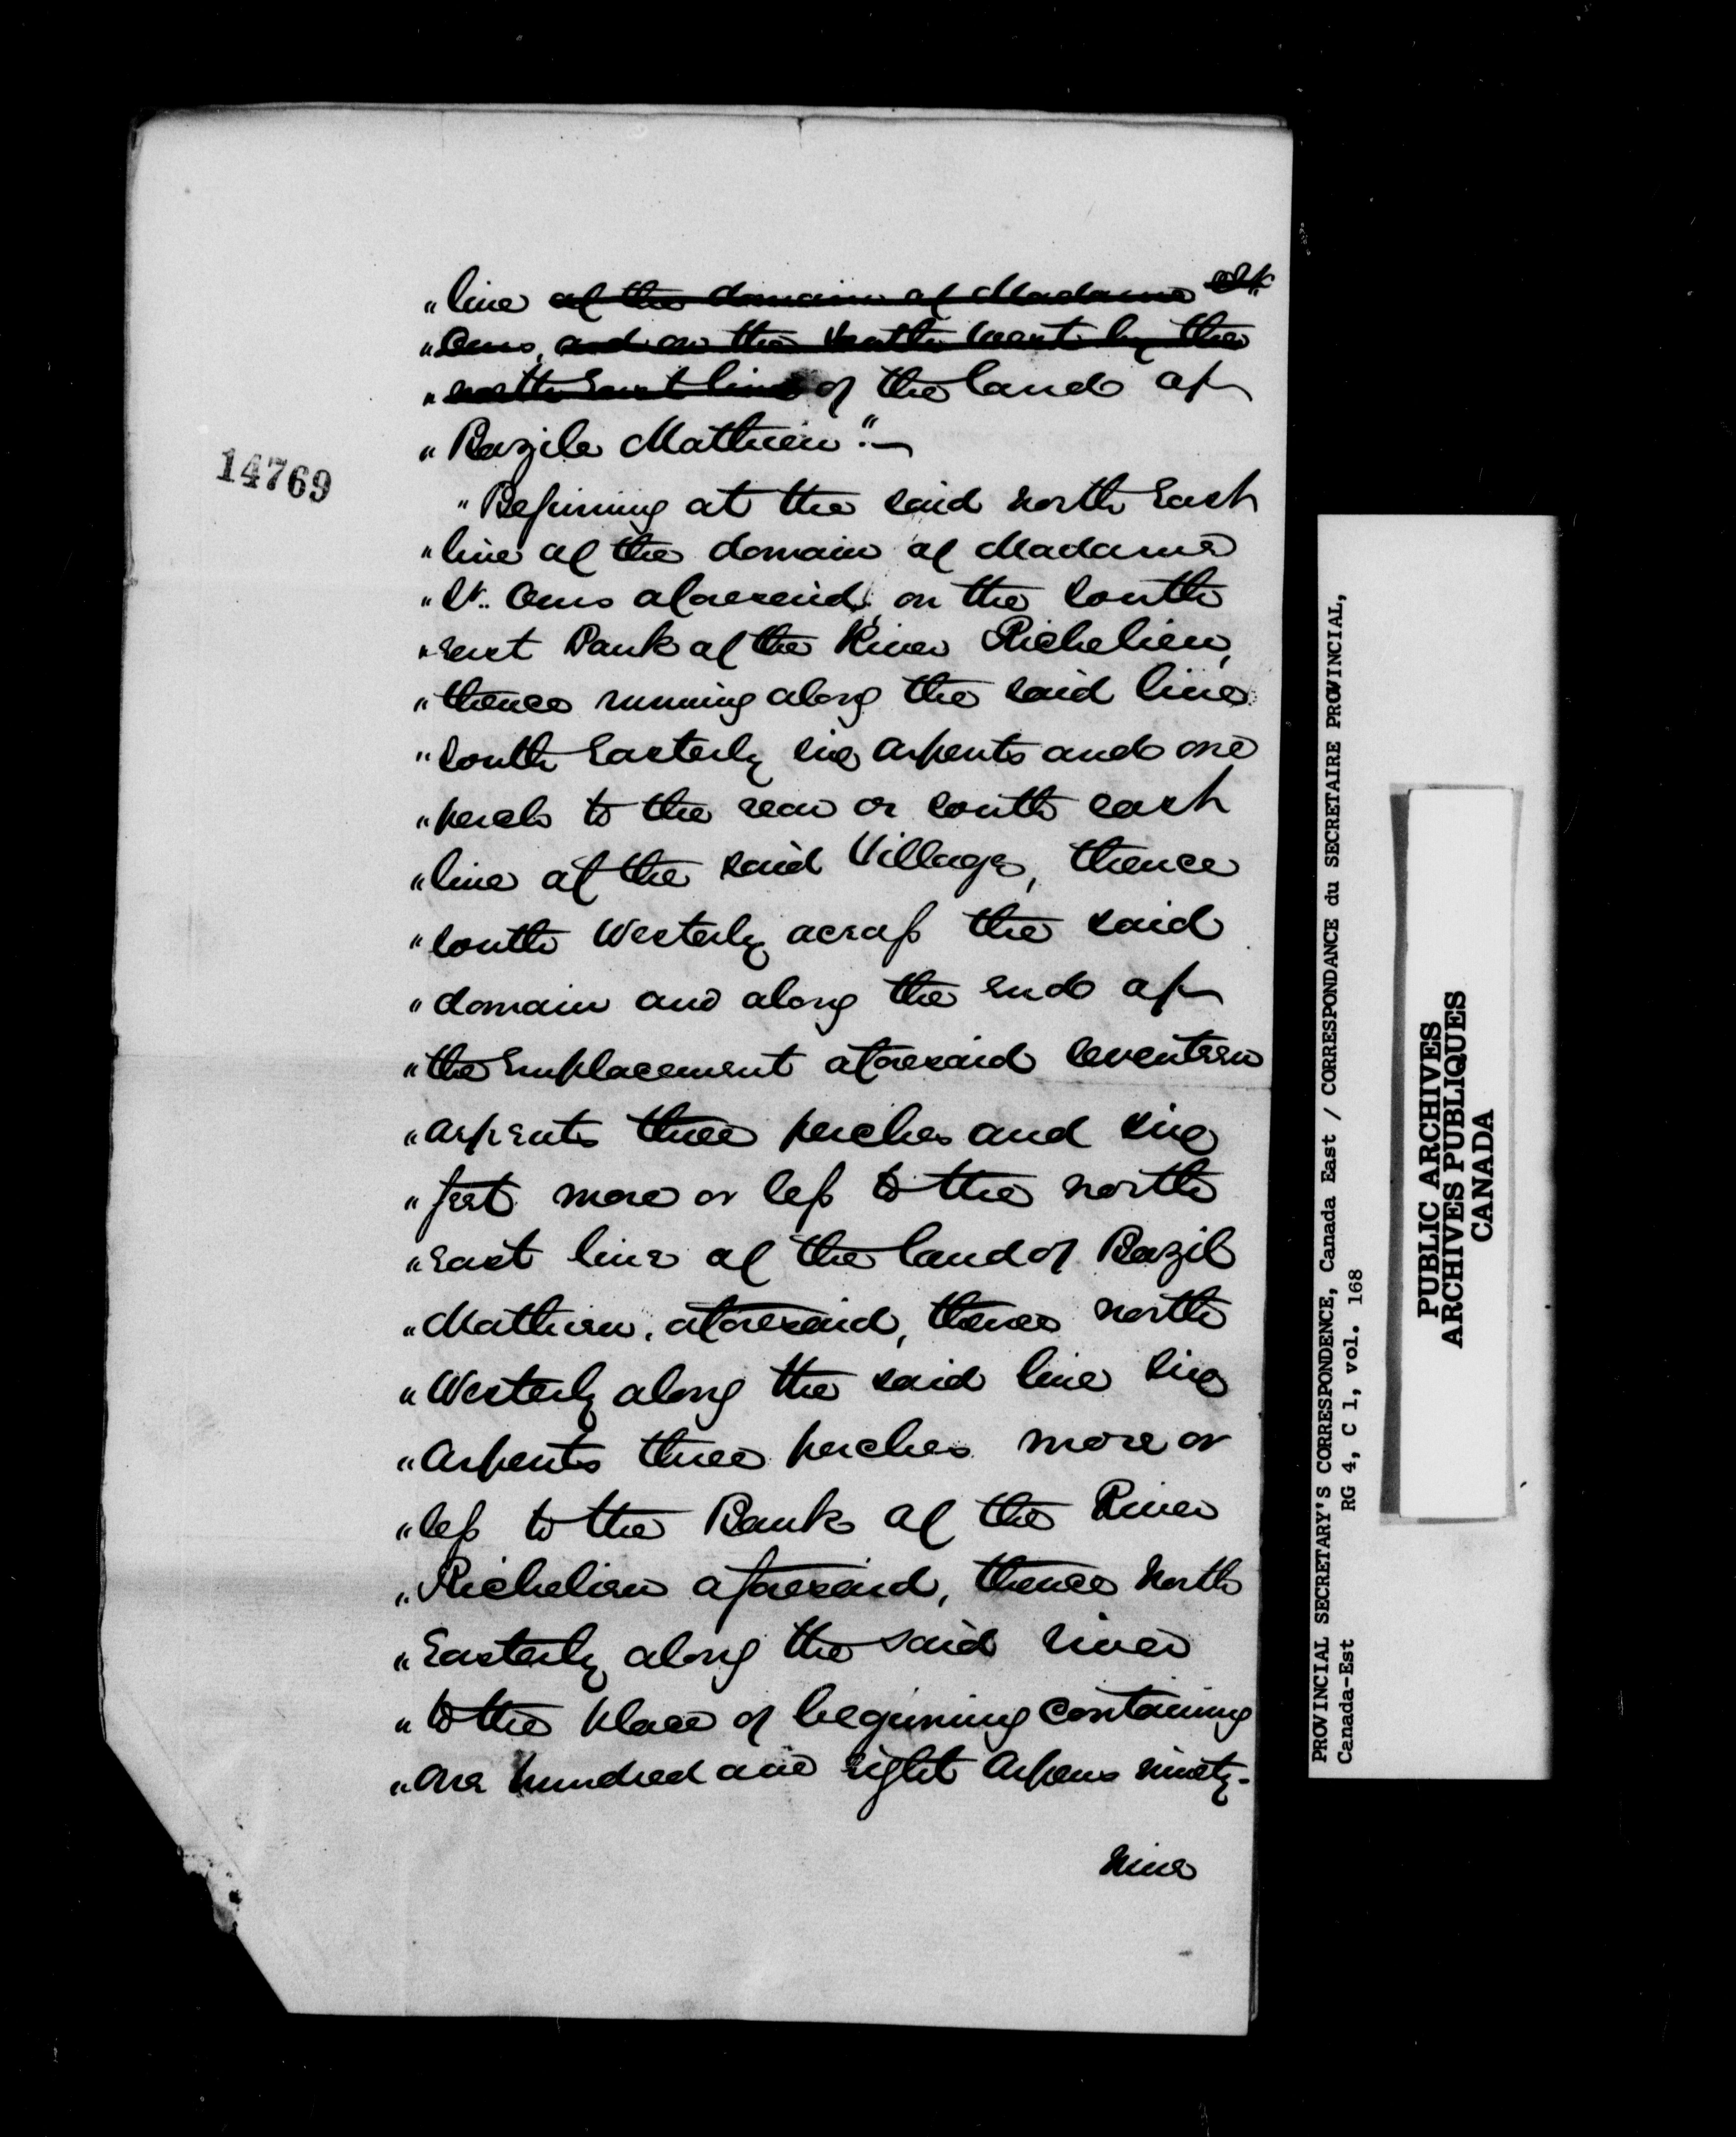 "line of the domain of Madame St.
"Ours, and on the South West by the
"north East line of the land of
"Bazile Mathieu."—
14769
"Beginning at the said north East
"line of the domain of Madame
"St. Ours aforesaid, on the South
"East Bank of the River Richelieu,
"thence running along the said line
"South Easterly six arpents and one
"perch to the rear or south east
"line of the said Village, thence
"South Westerly across the said
"domain and along the end of
"the Emplacement aforesaid seventeen
"arpents three perches and six
"feet more or less to the north
"East line of the land of Bazil
"Mathieu, aforesaid, thence north
"Westerly along the said line six
"Arpents three perches more or
"less to the Bank of the River
"Richelieu aforesaid, thence North
"Easterly along the said river
"to the place of beginning containing
"One hundred and eight Arpens ninety-
nine
PROVINCIAL SECRETARY'S CORRESPONDENCE, Canada East / CORRESPONDANCE du SECRETAIRE PROVINCIAL,
Canada-Est RG 4, C 1, vol. 168
PUBLIC ARCHIVES
ARCHIVES PUBLIQUES
CANADA